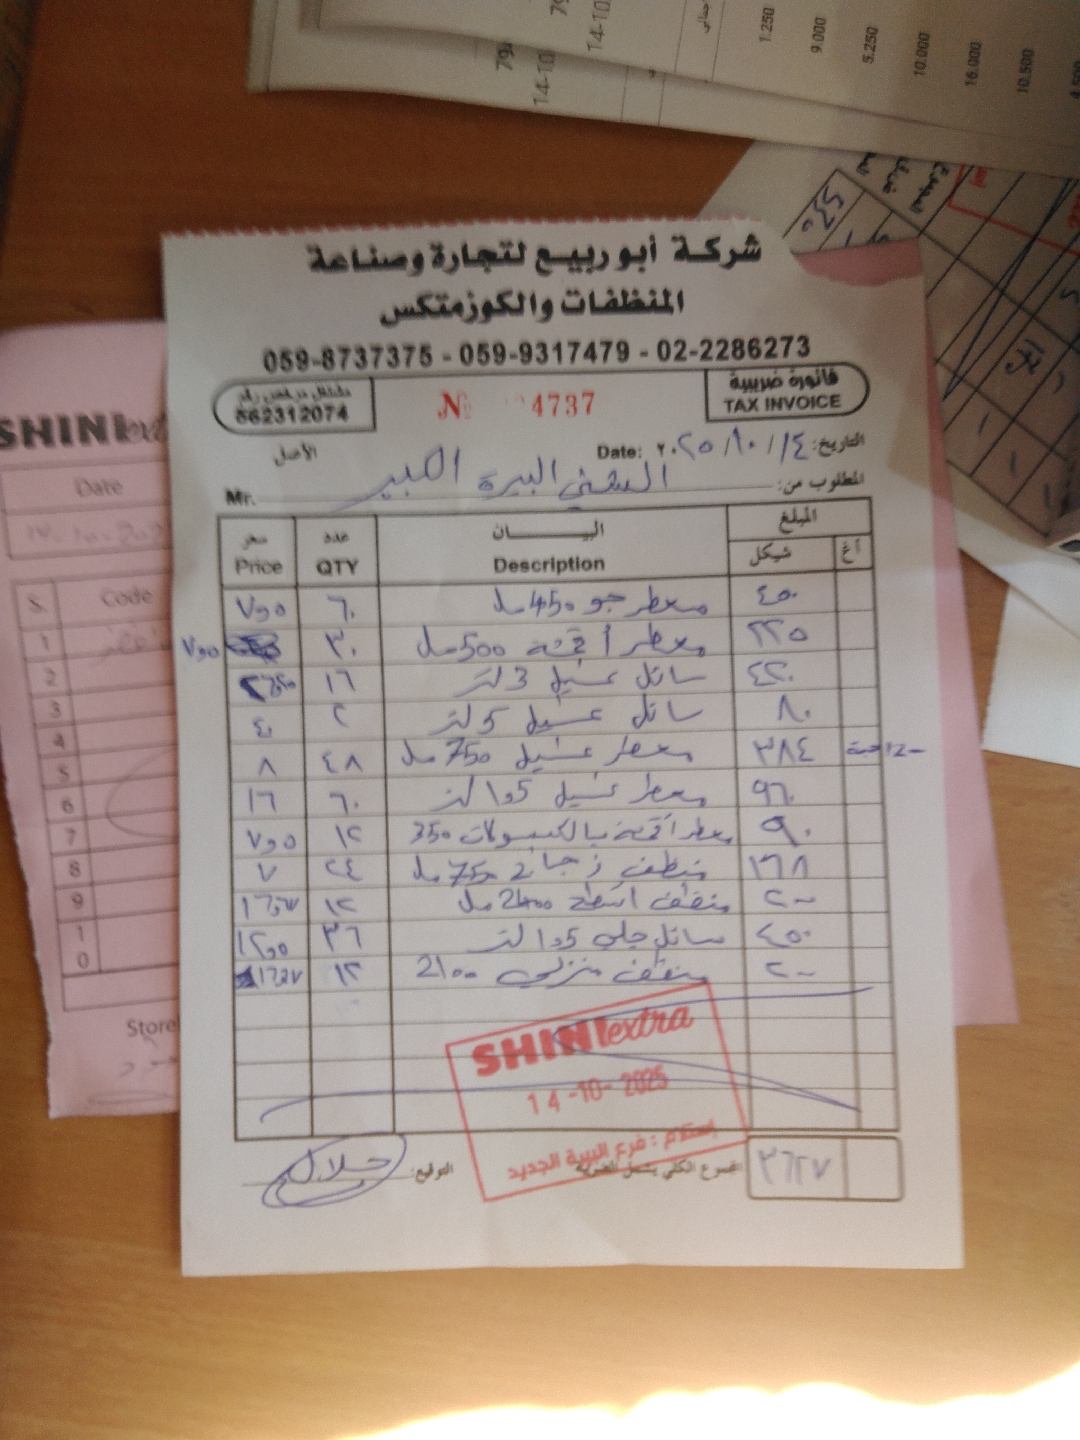 1.250
9.000
5.250
10.000
16.000
10.500
14-10
شركة أبو ربيع لتجارة وصناعة
المنظفات والكوزمتكس
059-8737375 - 059-9317479 - 02-2286273
مشتغل مرخص رقم
562312074
№ 4737
فاتورة ضريبية
TAX INVOICE
الأصل
Date: ٢٠٢٥/١٠/١٤ التاريخ:
Mr. الشني البيرة الكبير المطلوب من:
سعر Price عدد QTY البيــــــان Description المبلغ شيكل أغ
٧و٥٠ ٦٠ معطر جو 450 مل ٤٥٠
٧و٥٠ ٣٠ معطر أقمشة 500 مل ٢٢٥
١٦ سائل غسيل 3 لتر ٤٢٠
٤٠ ٢ سائل غسيل 5 لتر ٨٠
٨ ٤٨ معطر غسيل 750 مل ٣٨٤
١٦ ٦٠ معطر غسيل 1و5 لتر ٩٦٠
٧و٥٠ ١٢ معطر أقمشة بالكبسولات 350 ٩٠
٧ ٢٤ منظف زجاج 750 مل ١٦٨
١٦و٦٧ ١٢ منظف اسطح 2400 مل ٢٠٠
١٢و٥٠ ٣٦ سائل جلي 1و5 لتر ٤٥٠
١٦و٦٧ ١٢ منظف منزلي 2100 ٢٠٠
SHINI extra
14-10-2025
إستلام : فرع البيرة الجديد
المجموع الكلي يشمل الضريبة ٣٦٢٧
التوقيع: جلال
SHINI extra
Date
S. Code
1
2
3
4
5
6
7
8
9
10
Store